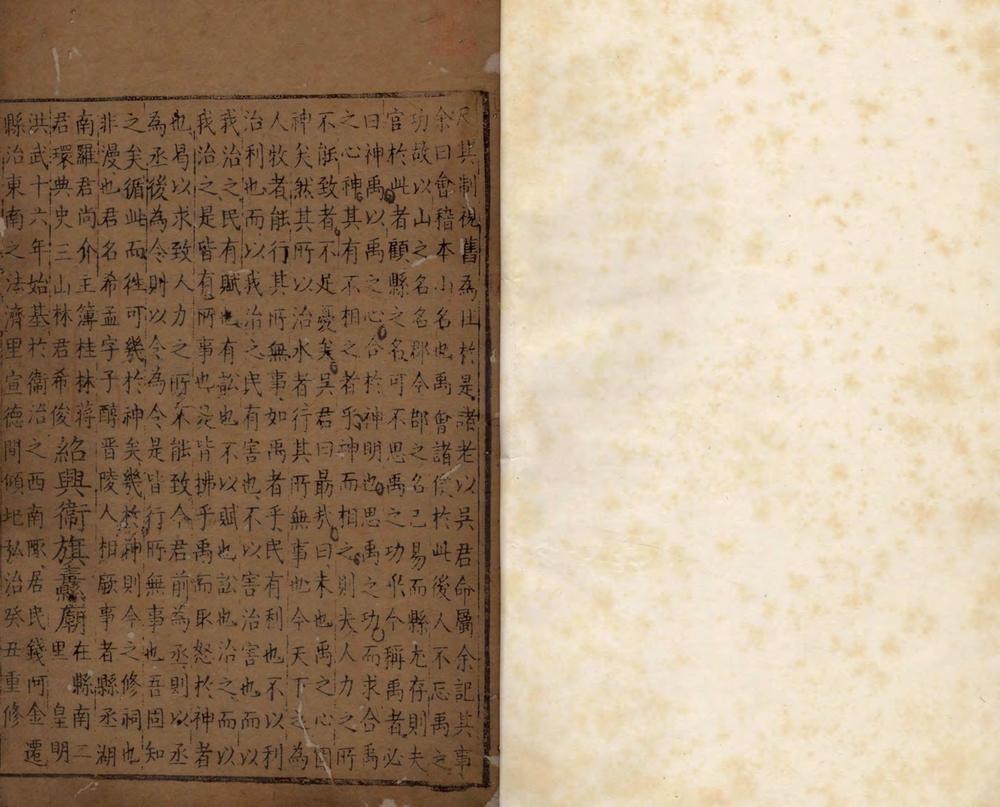 尺其制視舊為壯於是諸老以吳君命屬余記其事
余曰會稽本山名也禹會諸侯於此後人不忘禹之
功故以山之名名郡今郡之名已易而縣尤存則夫
官於此者顧縣之名可不思禹之功乎今稱禹者必
曰神禹以禹之心合於神明也思禹之功而求合禹
之心神其有不相之者乎神而相之則夫人力之所
不能致者不足憂矣吳君曰最哉曰未也禹之心固
神矣然其所以治水者行其所無事也今天下之為
人牧者能行其所無事如禹者乎民有利也不以利
治利也而以我治之民有害也不以害治害也而以
我治之民有賦也有訟也不以賦也訟也治之而以
我治之是皆有所事也是皆拂乎禹而取怒於神者
也曷以求致人力之所不能致今君前為丞則以丞
為丞後為令則以令為令是皆行所無事也吾固知
之矣循此而徃可幾於神矣幾於神則今之修祠也
非漫也君名希孟字子醇晋陵人相厥事者縣丞湖
南羅君尚介主簿桂林蒋
君環典史三山林君希俊紹興衛旗纛廟在縣南二里皇明
洪武十六年始基於衛治之西南陬居民錢阿金遷
縣治東南之法濟里宣德間傾圮弘治癸丑重修